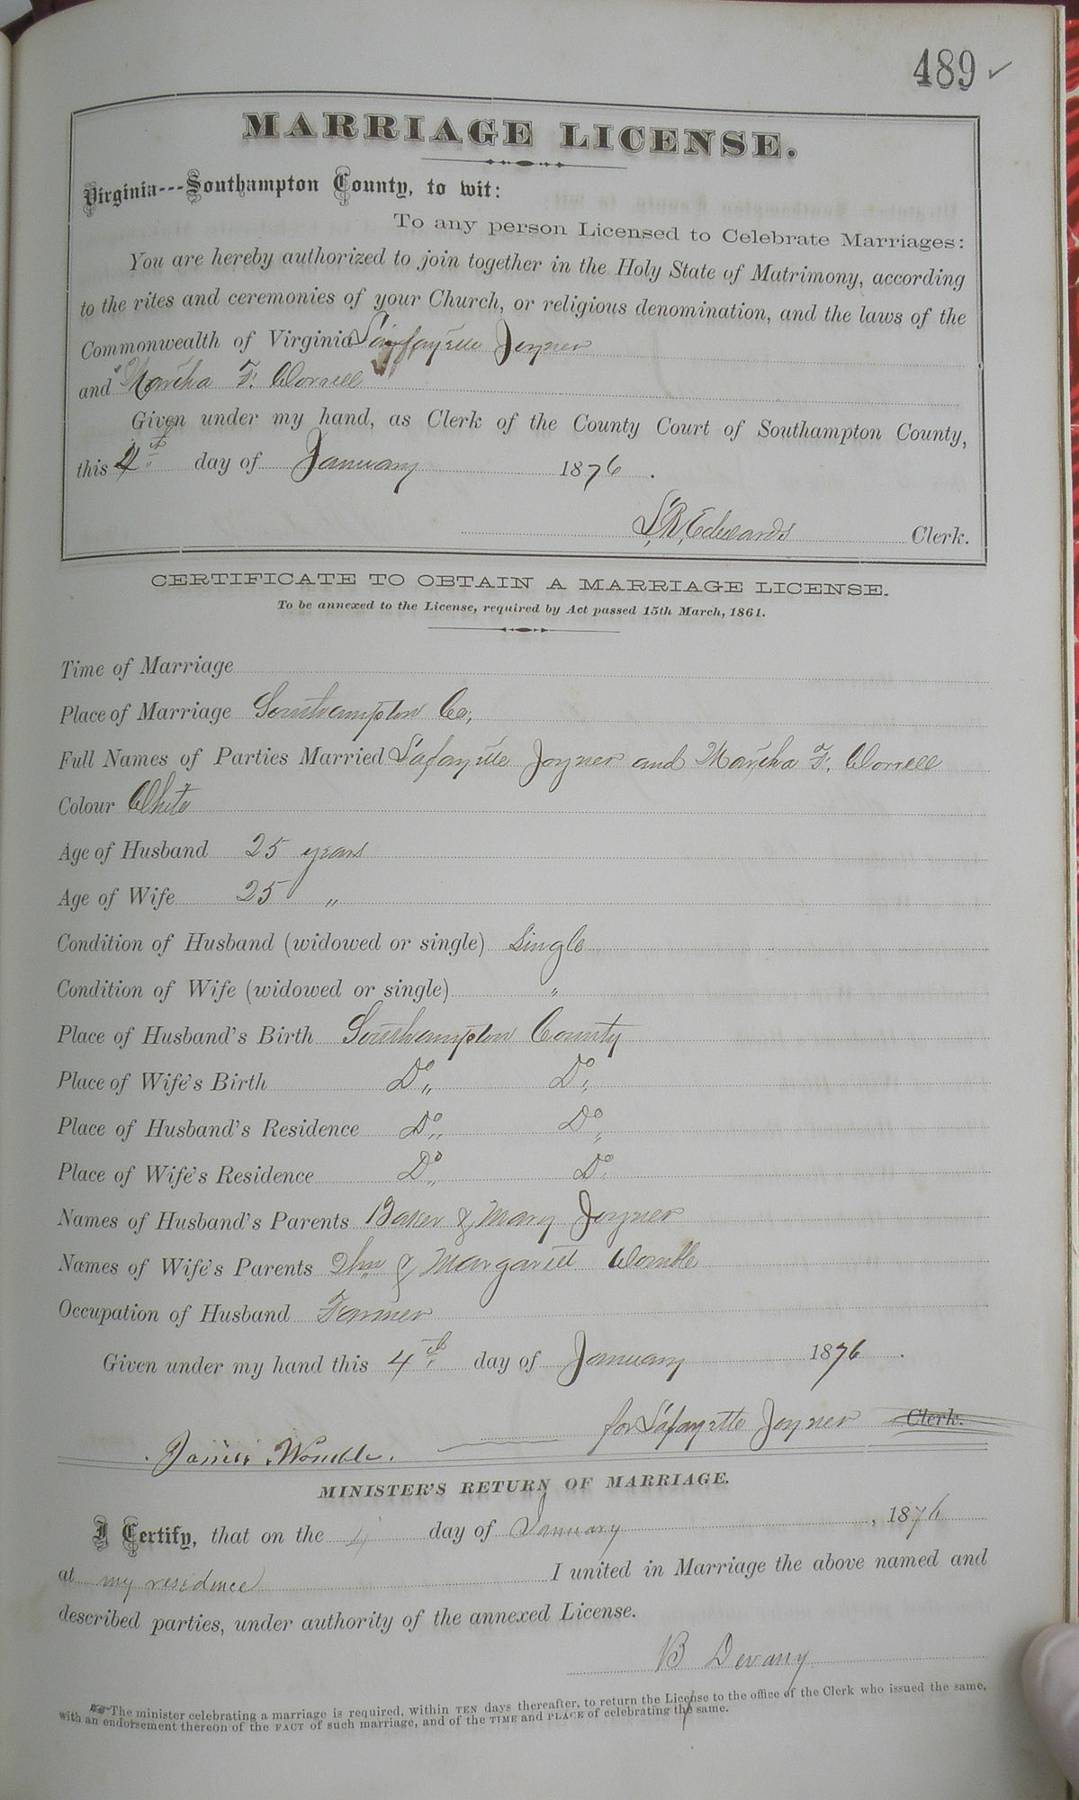 489 ✓
MARRIAGE LICENSE.
Virginia---Southampton County, to wit:
To any person Licensed to Celebrate Marriages:
You are hereby authorized to join together in the Holy State of Matrimony, according
to the rites and ceremonies of your Church, or religious denomination, and the laws of the
Commonwealth of Virginia Lafayette Joyner
and Martha F. Worrell
Given under my hand, as Clerk of the County Court of Southampton County,
this 4th day of January 1876.
L.R. Edwards Clerk.
CERTIFICATE TO OBTAIN A MARRIAGE LICENSE.
To be annexed to the License, required by Act passed 15th March, 1861.
Time of Marriage
Place of Marriage Southampton Co,
Full Names of Parties Married Lafayette Joyner and Martha F. Worrell
Colour White
Age of Husband 25 years
Age of Wife 25 "
Condition of Husband (widowed or single) Single
Condition of Wife (widowed or single) "
Place of Husband's Birth Southampton County
Place of Wife's Birth Do Do
Place of Husband's Residence Do Do
Place of Wife's Residence Do Do
Names of Husband's Parents Baker & Mary Joyner
Names of Wife's Parents & Margaret Womble
Occupation of Husband Farmer
Given under my hand this 4th day of January 1876.
for Lafayette Joyner Clerk.
Womble.
MINISTER'S RETURN OF MARRIAGE.
I Certify, that on the 4 day of January, 1876
at my residence I united in Marriage the above named and
described parties, under authority of the annexed License.
B Devany
The minister celebrating a marriage is required, within TEN days thereafter, to return the License to the office of the Clerk who issued the same,
with an endorsement thereon of the FACT of such marriage, and of the TIME and PLACE of celebrating the same.